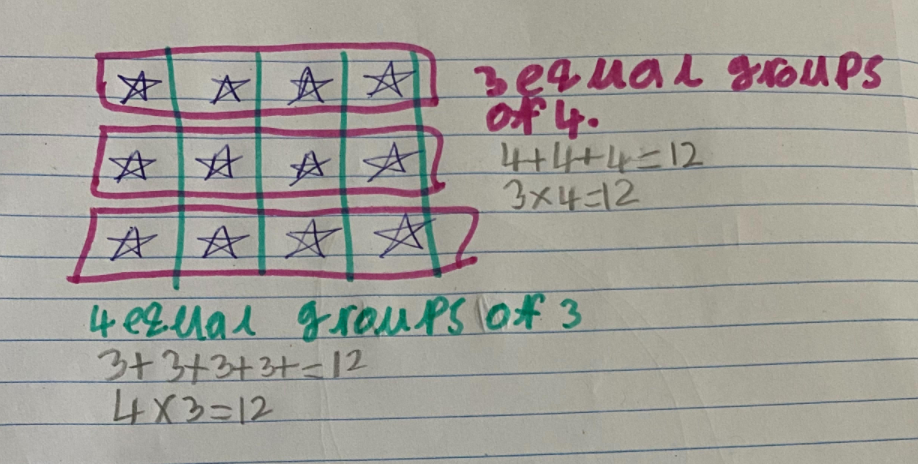 3 equal groups
of 4.
4+4+4=12
3×4=12
4 equal groups of 3
3+3+3+3+=12
4×3=12